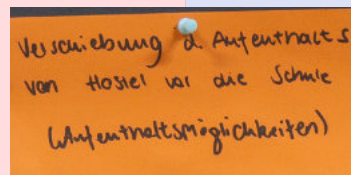 Verschiebung d. Aufenthalts
von Hostel vor die Schule
(Aufenthaltsmöglichkeiten)